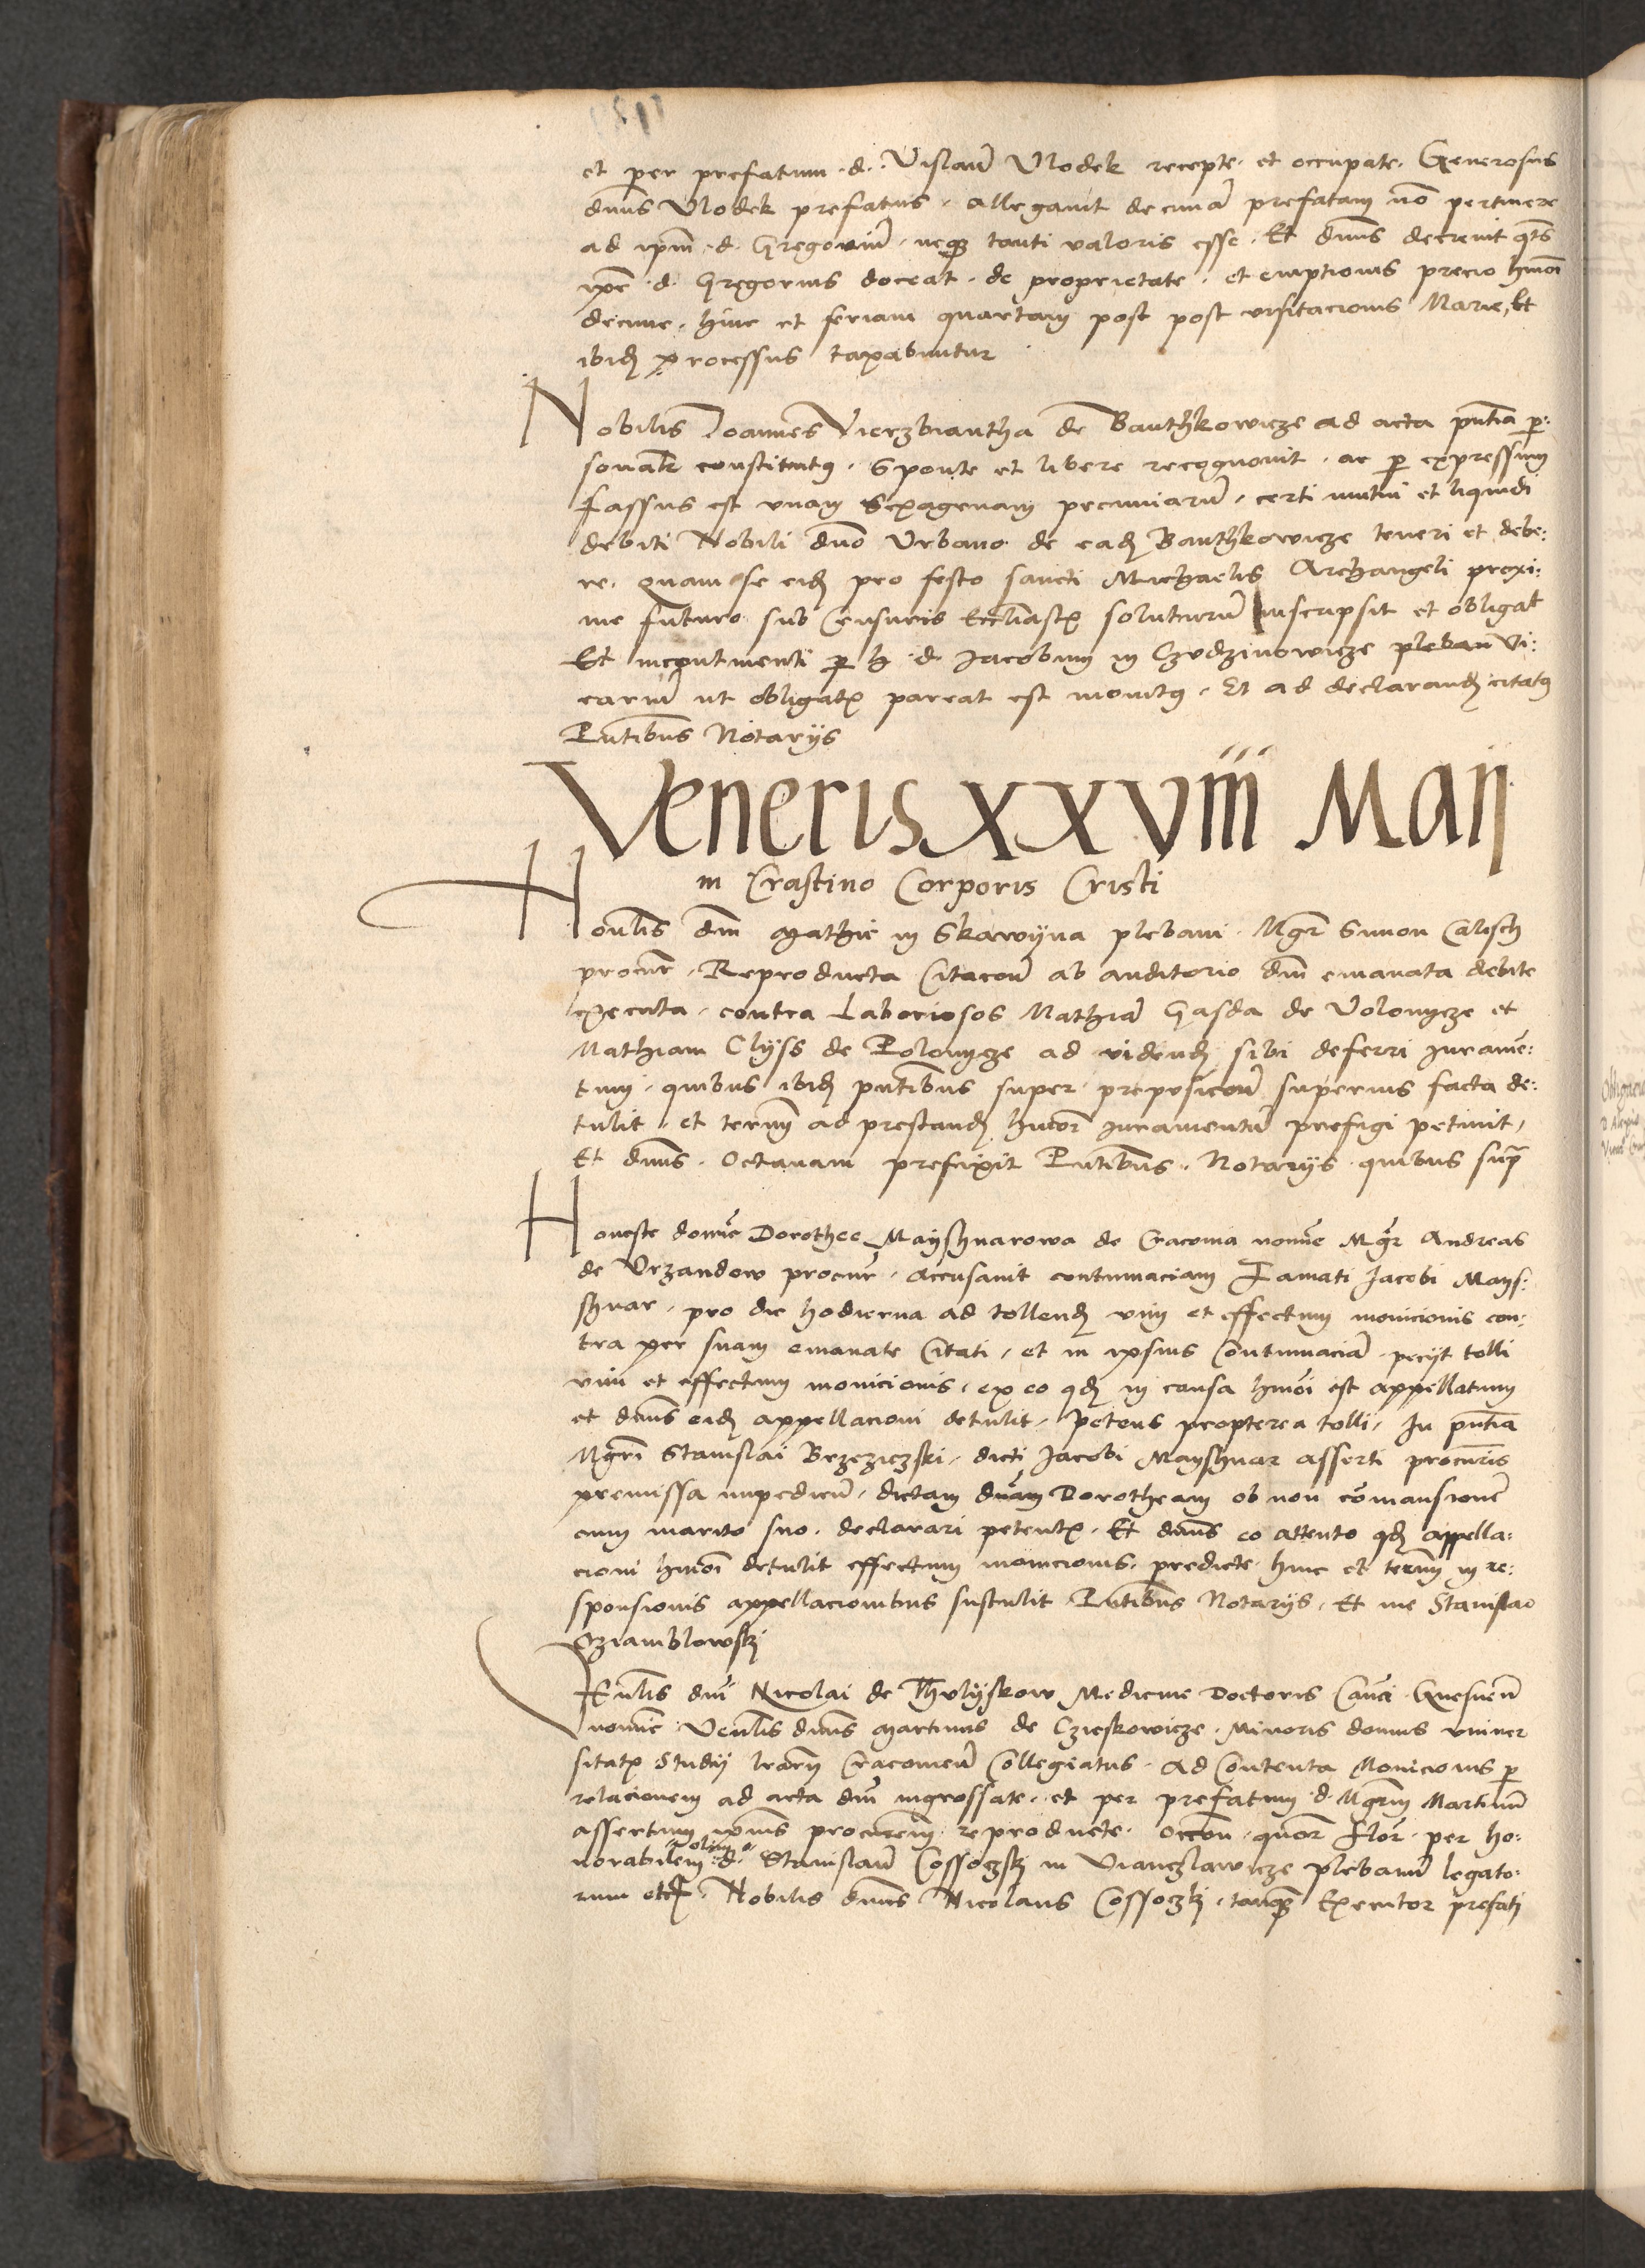 et per prefatum d. Vislaum Vlodek recepte et occupate. Generosus
dnus Vlodek prefatus allegavit decimam prefatam non pertinere
ad ipm d. Gregorium neqz tanti valoris esse. Et dnus decrevit qts
ipe d. Gregorius doceat de proprietate et emptionis precio hmoi
decime. hinc et feriam quartam post post visitacionis Marie, Et
ibid processus taxabuntur
Nobilis Joannes Vierzbiantha de Banthkowicze ad acta pntia per:
sonalr constitutus. Sponte et libere recognovit. ac per expressum
fassus est unam Sexagenam pecuniarum, certi mutui et liquidi
debiti Nobili dno Urbano de ead Banthkowicze teneri et debe:
re. Quam se eid pro festo sancti Michaelis Archangeli proxi:
me futuro sub Censuris Eccliasticis soluturum inscripsit et obligat
Et incontinenti per h. d. Jacobum in Czvdzinowicze pleban Vi:
carium ut obligatus pareat est monitus. Et ad declarand citatus
Pntibus Notarijs
Veneris XXVIII Maij
in Crastino Corporis Cristi
Honlis dni Mathie in Skawyna plebani. Mgr Simon Calisch
procur. Reproducta Citacone ab auditorio dni emanata debite
executa. contra Laboriosos Mathiam Gasda de Volonycze et
Mathiam Clyss de Polonycze ad videnд sibi deferri iurame:
tum. quibus ibid pntibus super preposicone superius facta de:
tulit. et termn ad prestand hmoi iuramentum prefigi petivit,
Et dnus. Octavam prefixit Pntibus. Notarijs quibus supra
Honeste domine Dorothee Mayshnarowa de Cracovia nomine Mgr Andreas
de Vrzandow procur. accusavit contumaciam Famati Jacobi Mays:
shnar. pro die hodierna ad tollend vim et effectum monicionis con:
tra per suam emanate Citati, et in ipsius Contumaciam pecijt tolli
vim et effectum monicionis. ex eo qd in causa hmoi est appellatum
et dnus eid appellacioni detulit, Petens propterea tolli, In pntia
Mgri Stanislai Brzeziczski. dicti Jacobi Mayshnar asserti procuris
premissa impedien. dictam dnam Dorotheam ob non comansionem
cum marito suo. declarari petentis. Et dnus eo attento qd appella:
cioni hmoi detulit effectum monicionis predicte hinc et termn in re:
sponsionis appellacionibus sustulit Pntibus Notarijs. Et me Stanislao
Sziamblowski
Venlis dni Nicolai de Tholyskow Medicine Doctoris Canci Gnesnen
nomine Venlis dnus Martinus de Czieskowicze. Minoris domus univer
sitatis Studij lrarum Cracovien Collegiatus. ad Contenta Monicionis per
relacionem ad acta dni ingrossate. et per prefatum d. Mgrum Martinum
assertum ipsius procurem reproducte. occon. quor flor. per ho:
norabilem olim d. Stanislaum Cossoczski in Vianczlawicze plebanum legato:
rum etc. Nobilis dnus Nicolaus Cossoczki. tanqz Executor prefati